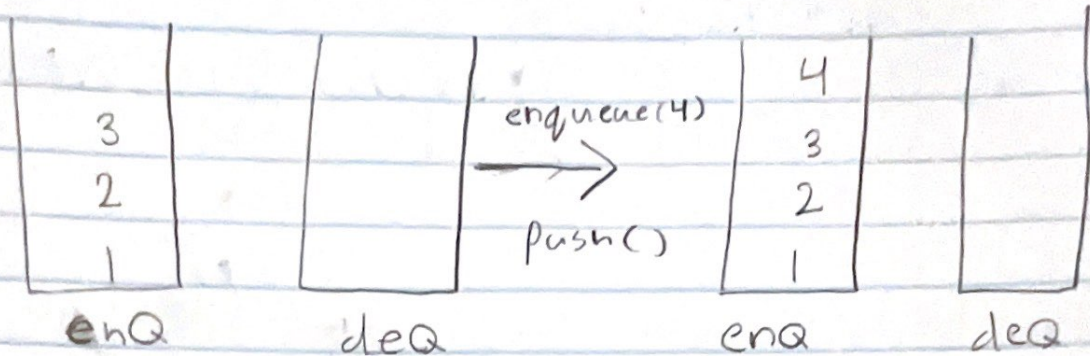 3
2
1
enQ
deQ
enqueue(4)
push()
4
3
2
1
enQ
deQ